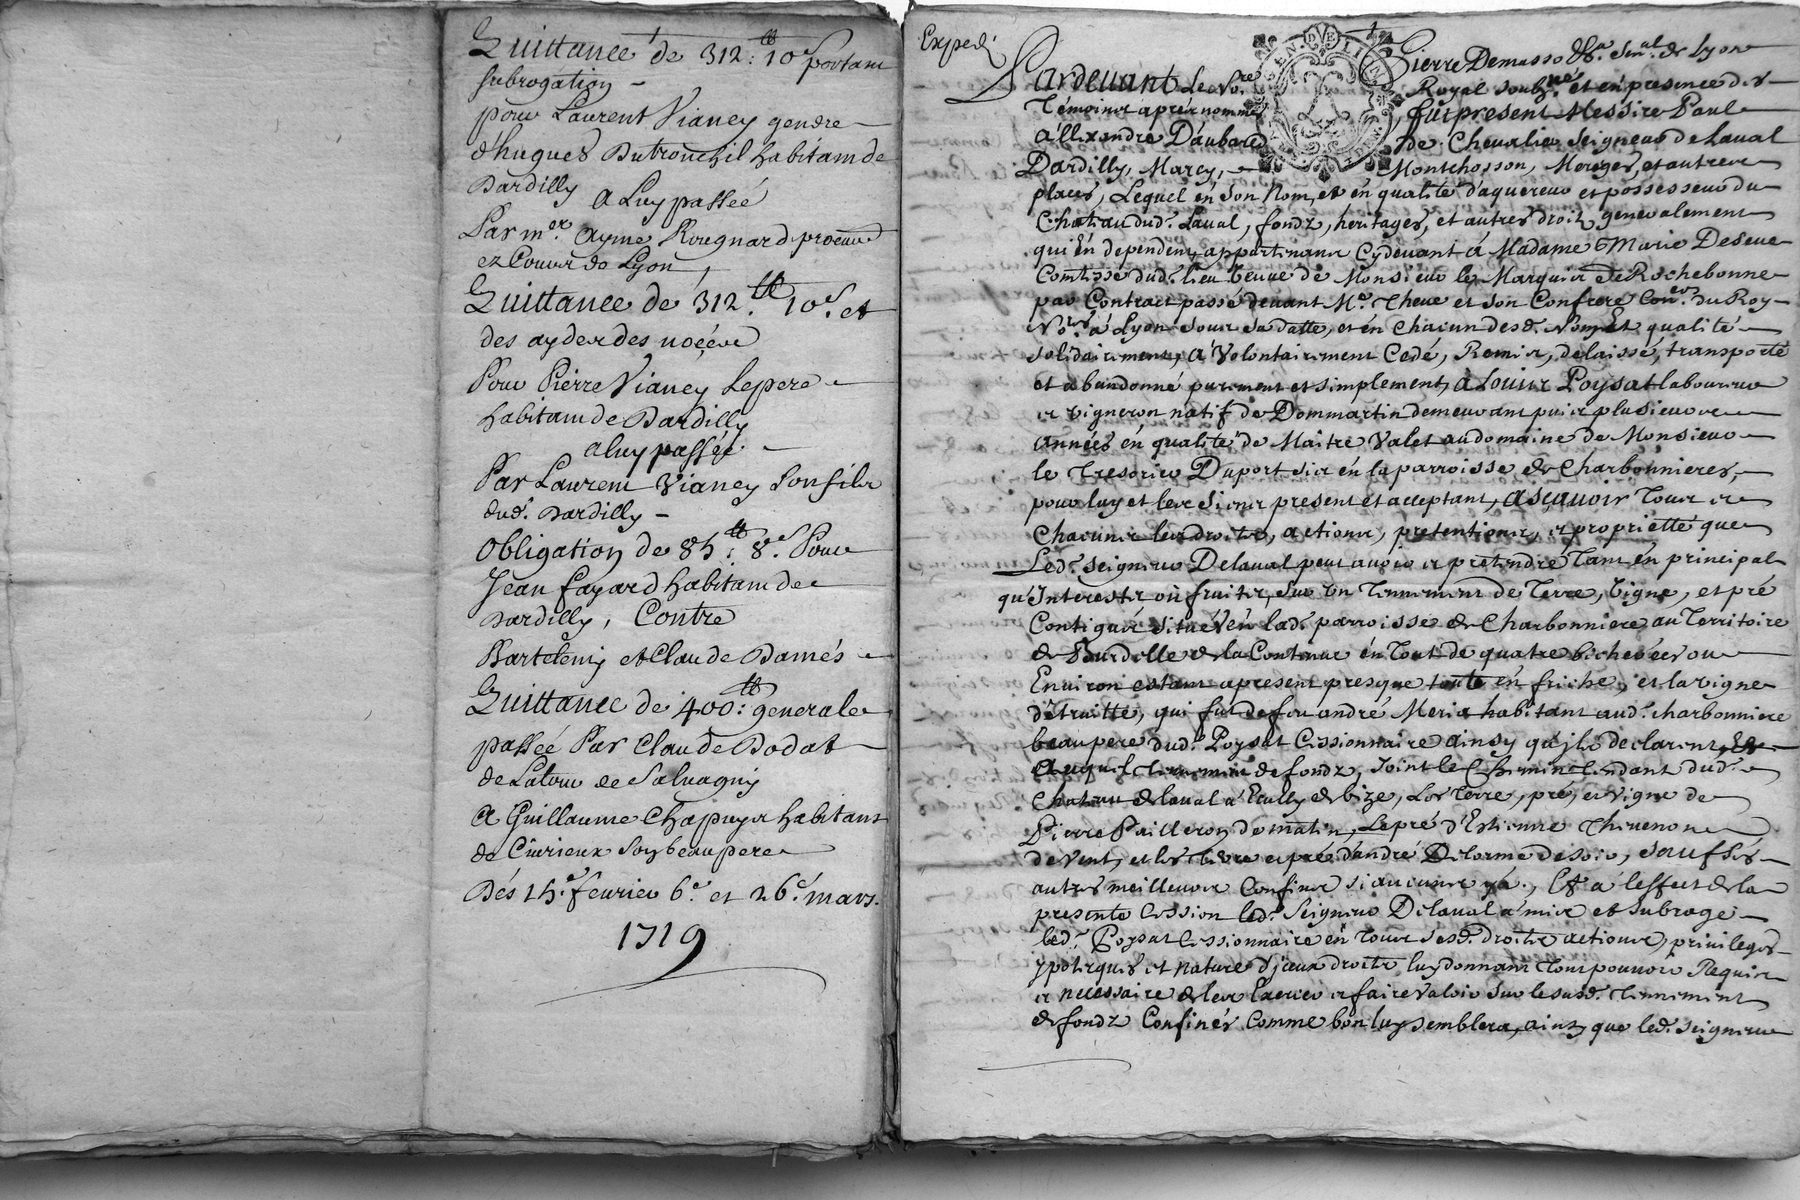 Quittance de 312 ₶: 10 s portant
subrogation
pour Laurent Vianey gendre
d'hugues Dutronchil habitam de
Dardilly
a Luy passée
Par me. ayme Rougnard procure
ez Cours de Lyon,
Quittance de 312 ₶: 10 s. et
des ayder des noççes
Pour Pierre Vianey Lepere
habitam de Dardilly
a luy passée
Par Laurent Vianey Son fils
dud. Dardilly
Obligation de 85 ₶: 8 s. Pour
Jean fayard habitam de
Dardilly, Contre
Bartelemy et Claude Damés
Quittance de 400 ₶: generale
passée Par Claude Dodat
de Latour de Salvagny
A Guillaume Chapuys habitant
de Civrieux Soy beaupere
Dés 15e. fevrier 6e. et 26e. mars.
1719
Exped.
Pardevant Le No.re Pierre Demasso &a. Sen.al de Lyon
Royal soubz.né et en presence des
Témoins aprés nommes, fut present Messire Paul
Allexandre Daubare de Chevalier Seigneur de Laval
Dardilly, Marcy, Montchosson, Moroges, et autres
places, Lequel en son Nom, et en qualité d'aquereur et possesseur du
Chateau dud. Laval, fondz, heritages, et autres droits generalement
qui En dependent, appartenans Cydevant á Madame Marie Deseve
Comtesse dud. lieu Veuve de Monsieur le Marquis de Rochebonne
par Contract passé devant Me. Theve et son Confrere Con.ers du Roy
No.res á Lyon Sous Sa datte, et en Chacun desd. Noms Et qualité
Solidairement, A Volontairement Cedé, Remis, delaissé, transporté
et abandonné purement et simplement, á Louis Poysat laboureur
et vigneron natif de Dommartin demeurant puis plusieurs
années en qualité de Maitre Valet au domaine de Monsieur
le Tresorier Duport Sis en la parroisse de Charbonnieres,
pour luy et les Siens present et acceptant, Asçavoir Tous et
Chacuns les droits, actions, pretentions, et proprietté que
Led. Seigneur Delaval peut avoir et pretendre Tant en principal
qu'Interests ou fruits, Sur Un Tennement de Terre, Vigne, et pré
Contigus Situé En lad. parroisse de Charbonniere au Territoire
de Bourdelle de la Contenue en Tout de quatre bicherées ou
Environ estant apresent presque toute en friche, et la vigne
détruitte, qui fut de feu andré Meria habitant aud. charbonniere
beaupere dud. Poysat Cessionnaire ainsy qu'ils declarent,
Auquel Tennement de fondz, Joint le Chemin Tendant dud.
Chateau de laval á Ecully de bize, Les Terre, pré, et vigne de
Pierre Pailleron de matin, Le pré d'Estienne Thivenon
de Vent, et les Terre et pré d'andré Delorme de soir, Sauf Ses
autres meilleures Confins si aucuns y á, Et á l'effect de la
presente Cession led. Seigneur Delaval á mis et Subrogé
led. Poysat Cessionnaire en Tous Sesd. droits actions, privileges
ypoteques et nature d'jceux droits luy donnant Tout pouvoir Requis
et necessaire de les Exercer et faire Valoir Sur le susd. Tennement
de fondz Confinés Comme bon luy semblera, ainsy que led. Seigneur